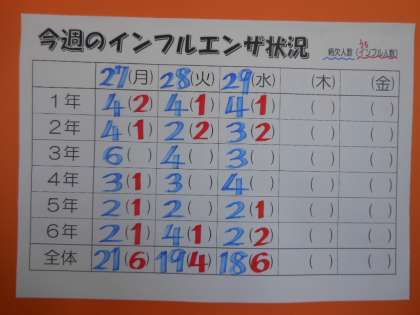 今週のインフルエンザ状況
病欠人数(インフル人数)
うち
27(月) 28(火) 29(水) (木) (金)
1年 4(2) 4(1) 4(1) ( ) ( )
2年 4(1) 2(2) 3(2) ( ) ( )
3年 6( ) 4( ) 3( ) ( ) ( )
4年 3(1) 3( ) 4( ) ( ) ( )
5年 2(1) 2( ) 2(1) ( ) ( )
6年 2(1) 4(1) 2(2) ( ) ( )
全体 21(6) 19(4) 18(6) ( ) ( )